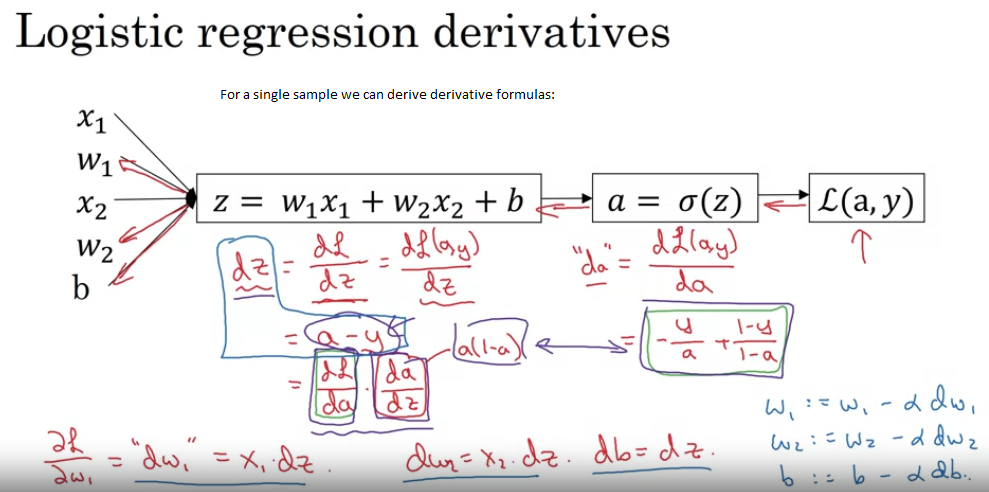 Logistic regression derivatives
For a single sample we can derive derivative formulas:
x₁
w₁
x₂
w₂
b
z = w₁x₁ + w₂x₂ + b
a = σ(z)
ℒ(a, y)
dz = dℒ/dz = dℒ(a,y)/dz
"da" = dℒ(a,y)/da
= a - y
= dℒ/da · da/dz
a(1-a)
= - y/a + 1-y/1-a
∂ℒ/∂w₁ = "dw₁" = x₁·dz.
dw₂ = x₂·dz.
db = dz.
w₁ := w₁ - α dw₁
w₂ := w₂ - α dw₂
b := b - α db.